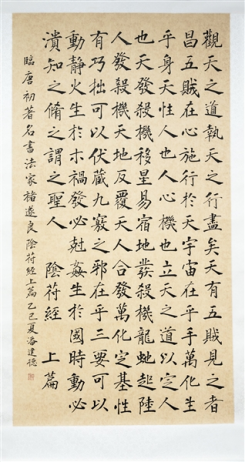 觀天之道執天之行盡矣天有五賊見之者
昌五賊在心施行於天宇宙在乎手萬化生
乎身天性人也人心機也立天之道以定人
也天發殺機移星易宿地發殺機龍蛇起陸
人發殺機天地反覆天人合發萬化定基性
有巧拙可以伏藏九竅之邪在乎三要可以
動静火生於木禍發必尅姦生於國時動必
潰知之脩之謂之聖人 陰符經 上篇
臨唐初著名書法家褚遂良陰符經上篇乙巳夏潘建德